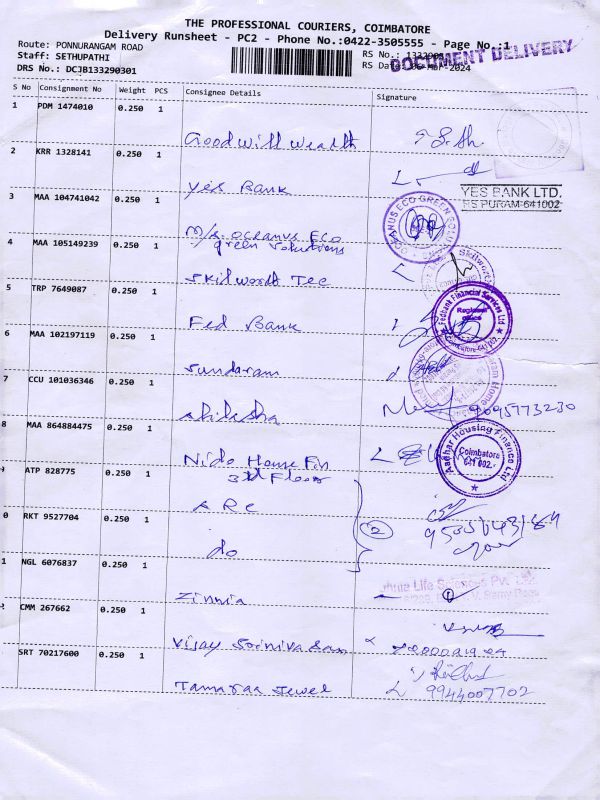 THE PROFESSIONAL COURIERS, COIMBATORE
Delivery Runsheet - PC2 - Phone No.:0422-3505555 - Page No.:1
Route: PONNURANGAM ROAD
Staff: SETHUPATHI
DRS No.: DCJB133290301
RS No.:
RS Date: 06-Mar-2024
DOCUMENT DELIVERY
S No Consignment No Weight PCS Consignee Details Signature
1 PDM 1474010 0.250 1
Goodwill Wealth
2 KRR 1328141 0.250 1
Yes Bank
YES BANK LTD.
RS PURAM-641002
3 MAA 104741042 0.250 1
M/s oceanus Eco
green solutions
OCEANUS ECO GREEN SOLUTIONS
4 MAA 105149239 0.250 1
Skilworth Tec
Skilworth
5 TRP 7649087 0.250 1
Fed Bank
Fedbank Financial Services Ltd
Regional
Office
Coimbatore-641 002
6 MAA 102197119 0.250 1
Sundaram
7 CCU 101036346 0.250 1
9095773230
8 MAA 864884475 0.250 1
Nido House Fin
3rd Floor
Aadhar Housing Finance Ltd
Coimbatore
641 002.
ATP 828775 0.250 1
A R C
0 RKT 9527704 0.250 1
do
2
1 NGL 6076837 0.250 1
Zinnia
Life Sciences Pvt. Ltd.
CMM 267662 0.250 1
Vijay Srinivasan
SRT 70217600 0.250 1
Tamaraa Jewel
9944007702